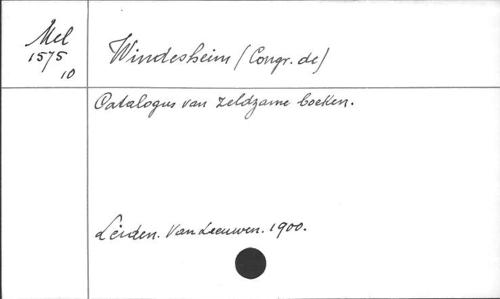 Mel
1575
10
Windesheim (Congr. de)
Catalogus van zeldzame boeken.
Leiden. Van Leeuwen. 1900.